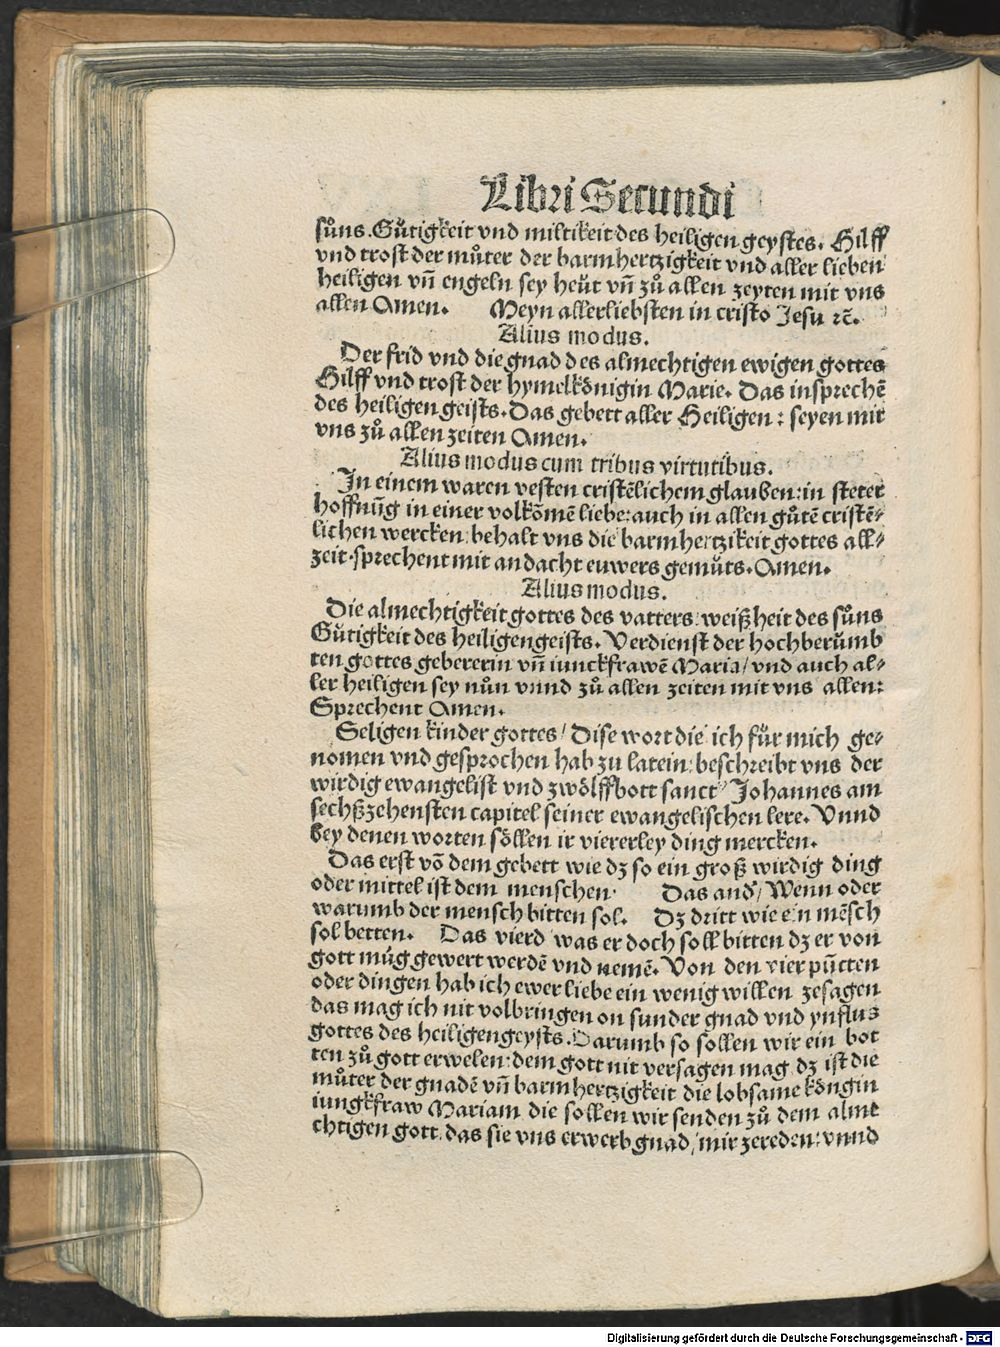 Libri Secundi
sůns. Gůtigkeit vnd miltikeit des heiligen geystes. Hilff
vnd trost der můter der barmhertzigkeit vnd aller lieben
heiligen vñ engeln sey heůt vñ zů allen zeyten mit vns
allen Amen. Meyn allerliebsten in cristo Jesu ꝛc̄.
Alius modus.
Der frid vnd die gnad des almechtigen ewigen gottes
Hilff vnd trost der hymelkönigin Marie. Das insprechē
des heiligen geists. Das gebett aller Heiligen: seyen mit
vns zů allen zeiten Amen.
Alius modus cum tribus virtutibus.
In einem waren vesten cristēlichem glauben: in steter
hoffnūg in einer volkōmē liebe: auch in allen gůtē cristē⸗
lichen wercken: behalt vns die barmhertzikeit gottes all⸗
zeit. sprechent mit andacht euwers gemůts. Amen.
Alius modus.
Die almechtigkeit gottes des vatters: weißheit des sůns
Gůtigkeit des heiligengeists. Verdienst der hochberůmb
ten gottes gebererin vñ iunckfrawē Maria/ vnd auch al⸗
ler heiligen sey nůn vnnd zů allen zeiten mit vns allen:
Sprechent Amen.
Seligen kinder gottes/ Dise wort die ich fůr mich ge⸗
nomen vnd gesprochen hab zu latein: beschreibt vns der
wirdig ewangelist vnd zwölffbott sanct Johannes am
sechßzehensten capitel seiner ewangelischen lere. Vnnd
bey denen worten söllen ir viererley ding mercken.
Das erst vō dem gebett wie dz so ein groß wirdig ding
oder mittel ist dem menschen. Das and̄/ Wenn oder
warumb der mensch bitten sol. Dz dritt wie ein mēsch
sol betten. Das vierd was er doch soll bitten dz er von
gott můg gewert werdē vnd nemē. Von den vier pūcten
oder dingen hab ich ewer liebe ein wenig willen zesagen
das mag ich nit volbringen on sunder gnad vnd ynflus
gottes des heiligengeysts. Darumb so sollen wir ein bot
ten zů gott erwelen: dem gott nit versagen mag dz ist die
můter der gnadē vñ barmhertzigkeit die lobsame köngin
iungkfraw Mariam die sollen wir senden zů dem alme
chtigen gott das sie vns erwerb gnad/ mir zereden: vnnd
Digitalisierung gefördert durch die Deutsche Forschungsgemeinschaft - DFG